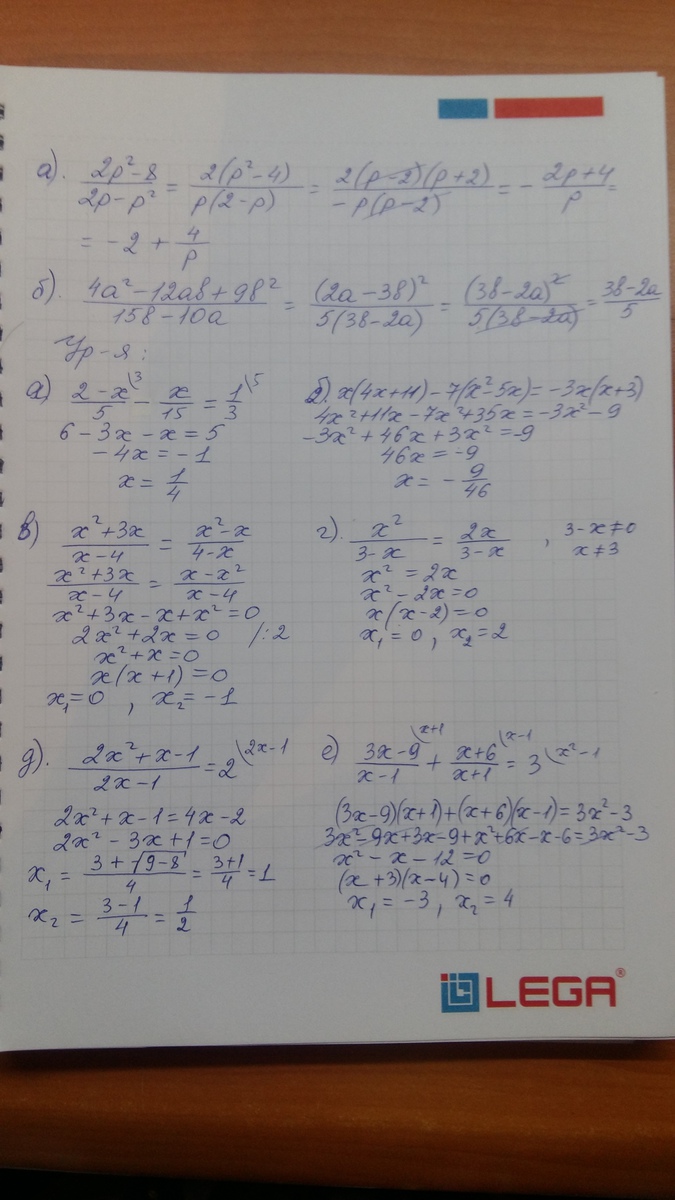 а). (2p²-8)/(2p-p²) = 2(p²-4)/p(2-p) = 2(p-2)(p+2)/-p(p-2) = - (2p+4)/p =
= -2 + 4/p
б). (4a²-12aв+9в²)/(15в-10a) = (2a-3в)²/5(3в-2a) = (3в-2a)²/5(3в-2a) = (3в-2a)/5
Ур-я:
а) (2-x)/5 \3 - x/15 = 1/3 \5
6-3x-x=5
-4x=-1
x= 1/4
б). x(4x+11)-7(x²-5x)=-3x(x+3)
4x²+11x-7x²+35x=-3x²-9
-3x²+46x+3x²=-9
46x=-9
x= - 9/46
в) (x²+3x)/(x-4) = (x²-x)/(4-x)
(x²+3x)/(x-4) = (x-x²)/(x-4)
x²+3x-x+x²=0
2x²+2x=0 /:2
x²+x=0
x(x+1)=0
x₁=0 , x₂=-1
г). x²/(3-x) = 2x/(3-x) , 3-x≠0
x≠3
x²=2x
x²-2x=0
x(x-2)=0
x₁=0, x₂=2
д). (2x²+x-1)/(2x-1) = 2 \2x-1
2x²+x-1=4x-2
2x²-3x+1=0
x₁ = (3+√9-8)/4 = (3+1)/4 = 1
x₂ = (3-1)/4 = 1/2
е) (3x-9)/(x-1) \x+1 + (x+6)/(x+1) \x-1 = 3 \x²-1
(3x-9)(x+1)+(x+6)(x-1)=3x²-3
3x²-9x+3x-9+x²+6x-x-6=3x²-3
x²-x-12=0
(x+3)(x-4)=0
x₁=-3, x₂=4
LEGA®